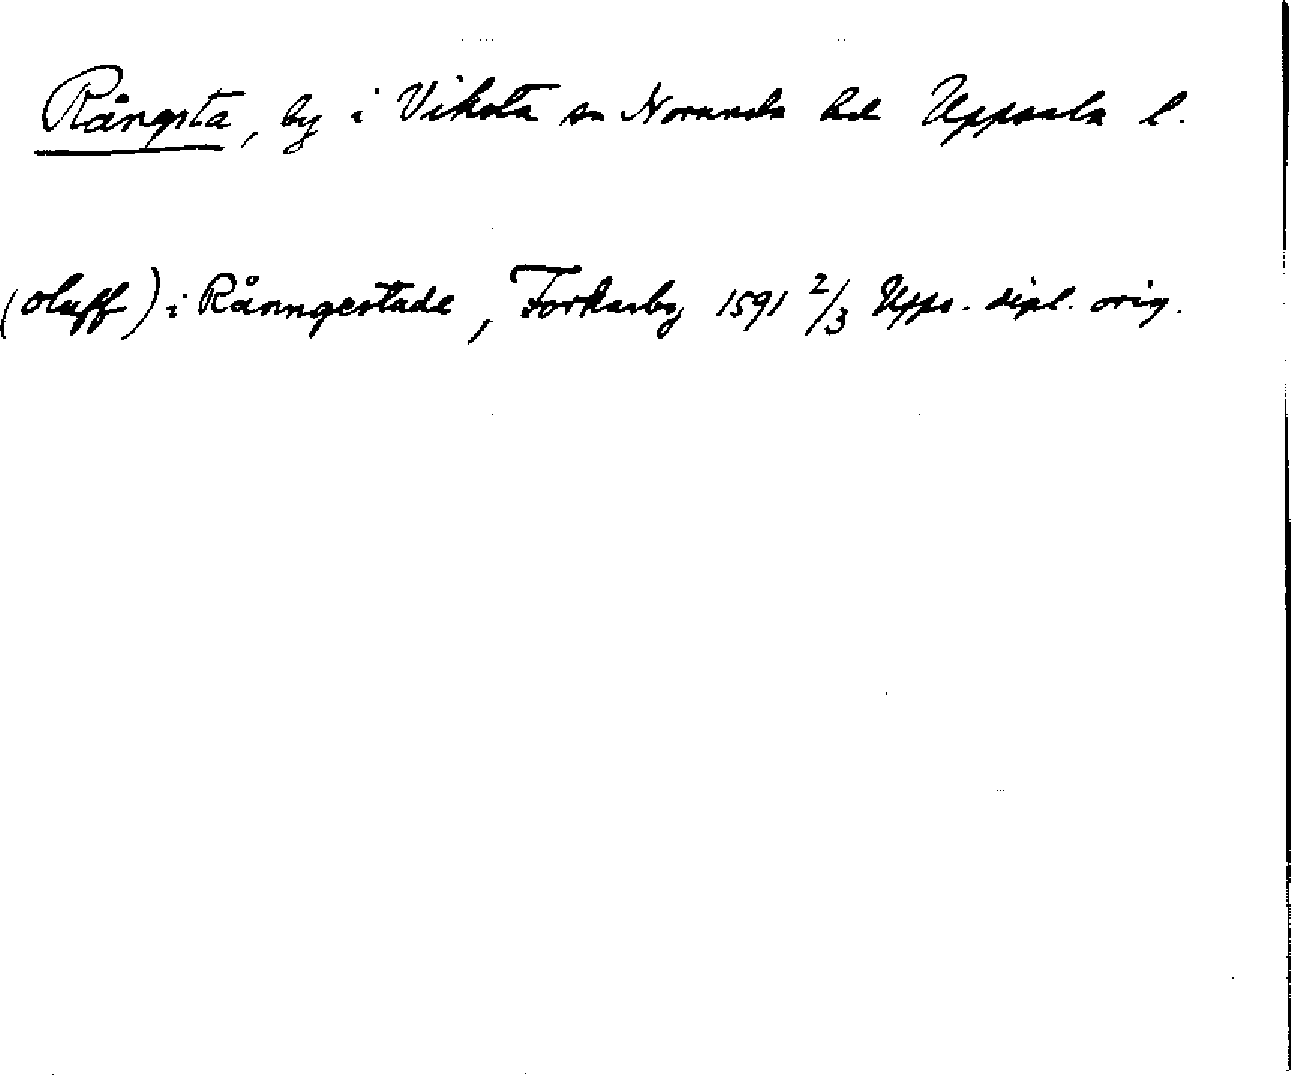 Rångsta, by i Viksta sn Norunda hd Uppsala l.
(oluff) i Rånngestade, Forkarby 1591 2/3 Upps. dipl. orig.